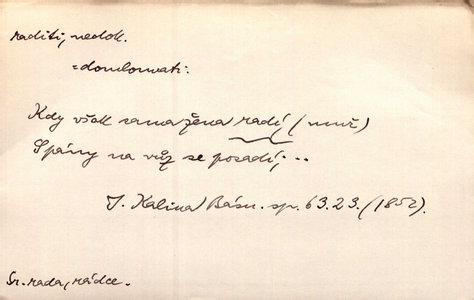 raditi, nedok.
= domlouvati:
Kdy však sama žena radí, (muž)
S pány na vůz se posadí; ..
J. Kalina Básn. sp. 63. 23. (1852).
Sr. rada, rádce.